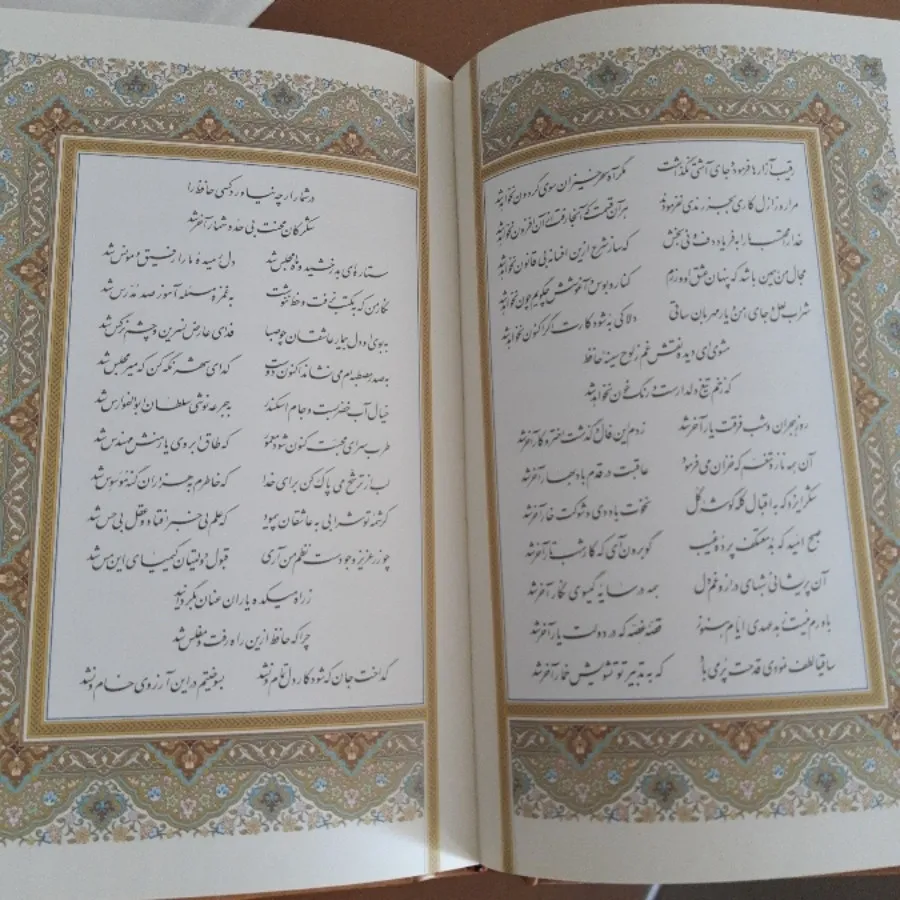 رقیب آزارها فرمود و جای آشتی نگذاشت مگر آه سحرخیزان سوی گردون نخواهد شد
مرا روز ازل کاری بجز رندی نفرمودند هر آن قسمت که آنجا رفت از آن افزون نخواهد شد
خدا را محتسب ما را به فریاد دف و نی بخش که ساز شرع ازین افسانه بی قانون نخواهد شد
مجال من همین باشد که پنهان عشق او ورزم کنار و بوس و آغوشش چگویم چون نخواهد شد
شراب لعل جای امن یار مهربان ساقی دلا کی به شود کارت اگر اکنون نخواهد شد
مشوی ای دیده نقش غم ز لوح سینه حافظ
که زخم تیغ دلدارست و رنگ خون نخواهد شد
روز هجران و شب فرقت یار آخر شد زدم این فال و گذشت اختر و کار آخر شد
آن همه ناز و تنعم که خزان می فرمود عاقبت در قدم باد بهار آخر شد
شکر ایزد که به اقبال کله گوشه گل نخوت باد دی و شوکت خار آخر شد
صبح امید که بد معتکف پرده غیب گو برون آی که کار شب تار آخر شد
آن پریشانی شبهای دراز و غم دل همه در سایه گیسوی نگار آخر شد
باورم نیست ز بدعهدی ایام هنوز قصه غصه که در دولت یار آخر شد
ساقیا لطف نمودی قدحت پرمی باد که به تدبیر تو تشویش خمار آخر شد
در شمار ار چه نیاورد کسی حافظ را
شکر کان محنت بی حد و شمار آخر شد
ستاره ای بدرخشید و ماه مجلس شد دل رمیده ما را رفیق و مونس شد
نگار من که بمکتب نرفت و خط ننوشت به غمزه مسئله آموز صد مدرس شد
ببوی او دل بیمار عاشقان چو صبا فدای عارض نسرین و چشم نرگس شد
به صدر مصطبه ام می نشاند اکنون دوست گدای شهر نگه کن که میر مجلس شد
خیال آب خضر بست و جام اسکندر به جرعه نوشی سلطان ابوالفوارس شد
طرب سرای محبت کنون شود معمور که طاق ابروی یار منش مهندس شد
لب از ترشح می پاک کن برای خدا که خاطرم به هزاران گنه موسوس شد
کرشمه تو شرابی به عاشقان پیمود که علم بی خبر افتاد و عقل بی حس شد
چو زر عزیز وجودست نظم من آری قبول دولتیان کیمیای این مس شد
ز راه میکده یاران عنان بگردانید
چرا که حافظ ازین راه رفت و مفلس شد
گداخت جان که شود کار دل تمام و نشد بسوختیم در این آرزوی خام و نشد